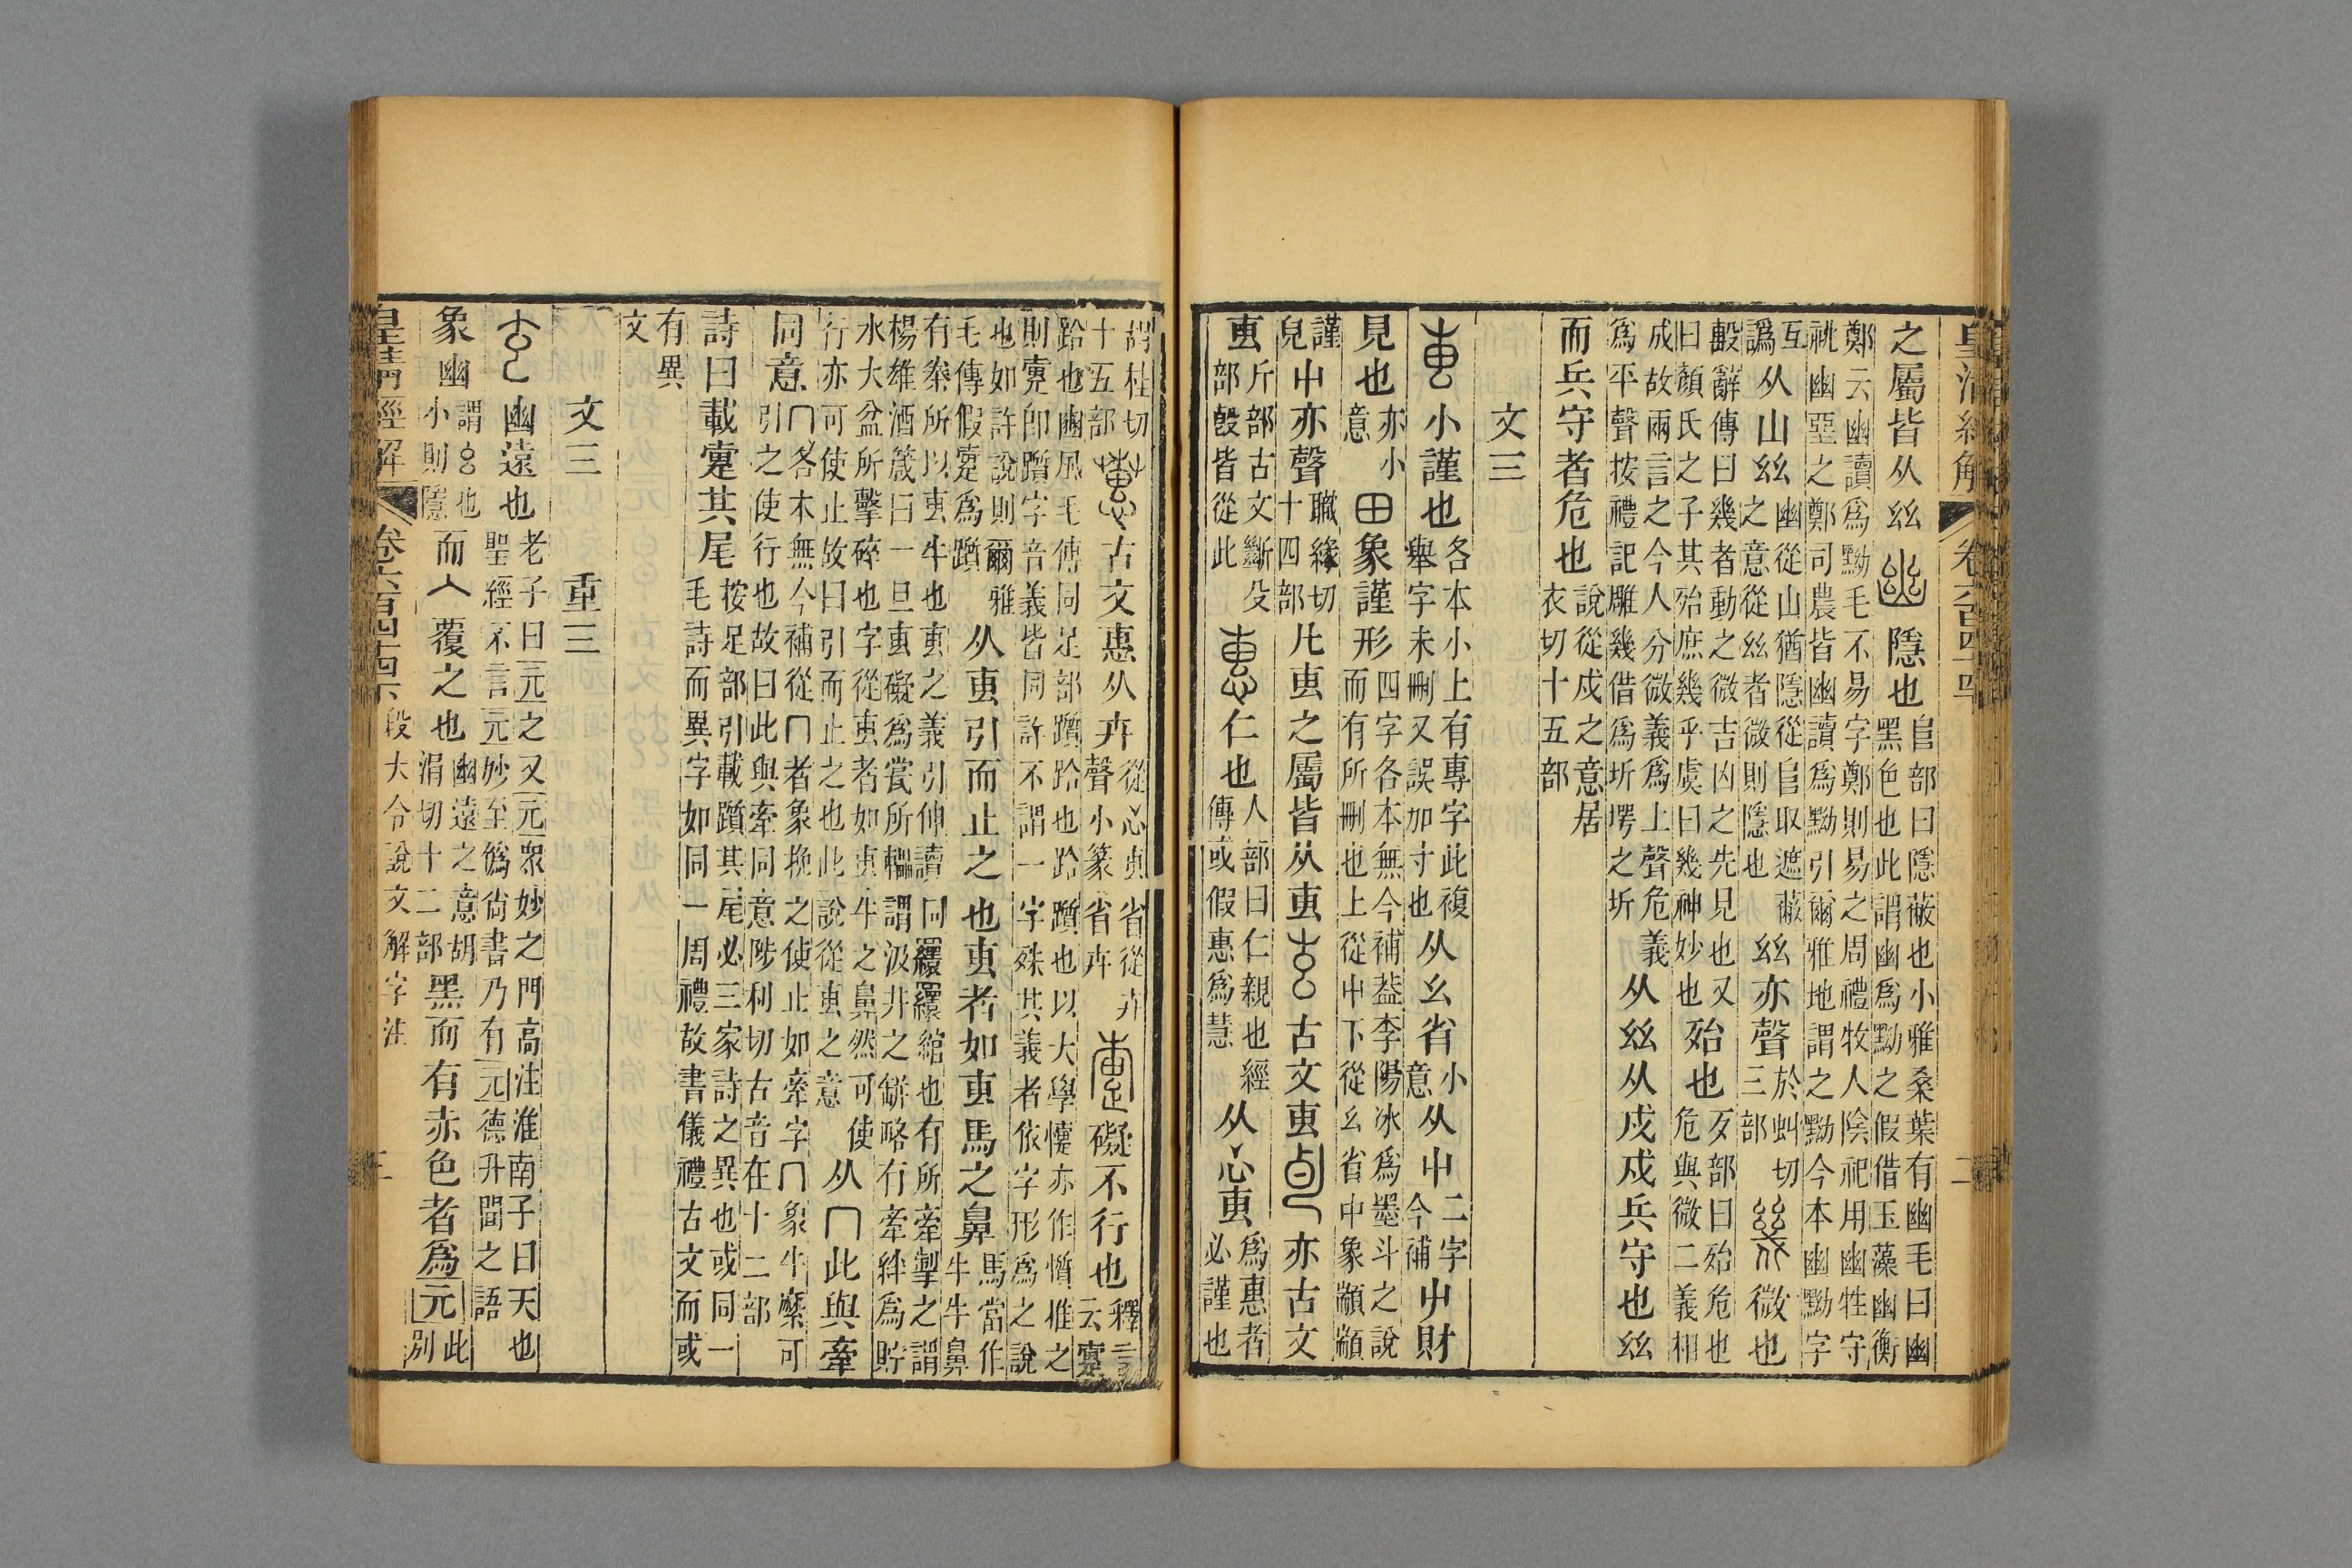 皇清經解 卷六百四十四 二
之屬皆从𢆶
隱也
𨸏部曰隱蔽也小雅桑葉有幽毛曰幽
黑色也此謂幽爲黝之假借玉藻幽衡
鄭云幽讀爲黝毛不易字鄭則易之周禮牧人陰祀用幽牲守
祧幽堊之鄭司農皆幽讀爲黝引爾雅地謂之黝今本幽黝字
互
譌
从山𢆶
幽從山猶隱從𨸏取遮蔽
之意從𢆶者微則隱也
𢆶亦聲
於虯切
三部
微也
毄辭傳曰幾者動之微吉凶之先見也又
曰顏氏之子其殆庶幾乎虞曰幾神妙也
殆也
歺部曰殆危也
危與微二義相
成故兩言之今人分微義爲上聲危義
爲平聲按禮記雕幾借爲圻堮之圻
从𢆶从戍戍兵守也𢆶
而兵守者危也
說從戍之意居
衣切十五部
文三
小謹也
各本小上有專字此複
舉字未刪又誤加寸也
从幺省
小
意
从屮
二字
今補
屮財
見也
亦小
意
田象謹形
四字各本無今補葢李陽冰爲墨斗之說
而有所刪也上從屮下從幺省中象顓顓
謹
皃
屮亦聲
職緣切
十四部
凡叀之屬皆从叀
古文叀
亦古文
叀
斤部古文斷殳
部㲃皆從此
仁也
人部曰仁親也經
傳或假惠爲慧
从心叀
爲惠者
必謹也
胡桂切
十五部
古文惠从卉
從心叀省從卉
聲小篆省卉
礙不行也
釋言
云疐
跲也豳風毛傳同足部躓跲也跲躓也以大學懥亦作懫推之
則疐卽躓字音義皆同許不謂一字殊其義者依字形爲之說
也如許說則爾雅
毛傳假疐爲躓
从叀引而止之也叀者如叀馬之鼻
馬當作
牛牛鼻
有桊所以叀牛也叀之義引伸讀同羉羉綰也有所牽掣之謂
楊雄酒箴曰一旦叀礙爲瓽所轠謂汲井之缾略有牽絆爲貯
水大盆所擊碎也字從叀者如叀牛之鼻然可使
行亦可使止故曰引而止之也此說從叀之意
从冂此與牽
同意
冂各本無今補從冂者象挽之使止如牽字冂象牛縻可
引之使行也故曰此與牽同意陟利切古音在十二部
詩曰載疐其尾
按足部引載躓其尾必三家詩之異也或同一
毛詩而異字如同一周禮故書儀禮古文而或
有異
文
文三 重三
幽遠也
老子曰元之又元衆妙之門高注淮南子曰天也
聖經不言元妙至僞尙書乃有元德升聞之語
象幽
謂幺也
小則隱
而入覆之也
幽遠之意胡
涓切十二部
黑而有赤色者爲元
此
別
皇清經解 卷六百四十四下 段大令說文解字注 三